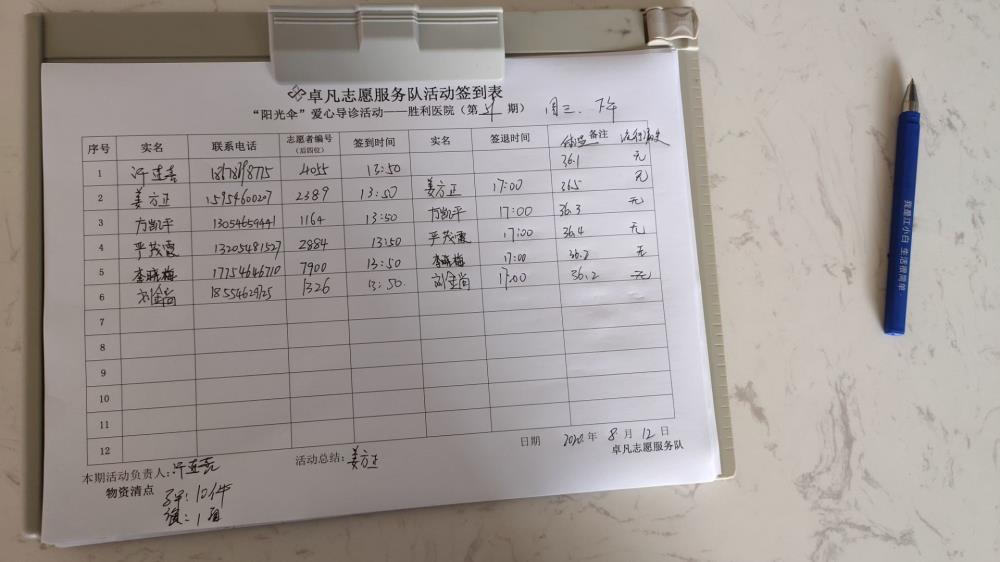 卓凡志愿服务队活动签到表
“阳光伞”爱心导诊活动——胜利医院（第 期） 周三. 下午
序号 实名 联系电话 志愿者编号（后四位） 签到时间 实名 签退时间 体温 备注 流行病史
1 许连喜 4055 13:50 36.1 无
2 姜方正 15954600207 2389 13:50 姜方正 17:00 36.5 无
3 方凯平 13054659441 1164 13:50 方凯平 17:00 36.3 无
4 严茂霞 13205481527 2884 13:50 严茂霞 17:00 36.4 无
5 李晓梅 17754646710 7900 13:50 李晓梅 17:00 36.2 无
6 刘金尚 18554629125 1326 13:50. 刘金尚 17:00 36.2 无
7
8
9
10
11
12
日期 2020 年 8 月 12 日
卓凡志愿服务队
本期活动负责人: 许连喜 活动总结: 姜方正
物资清点
: 10件
: 1
我是江小白 生活很简单